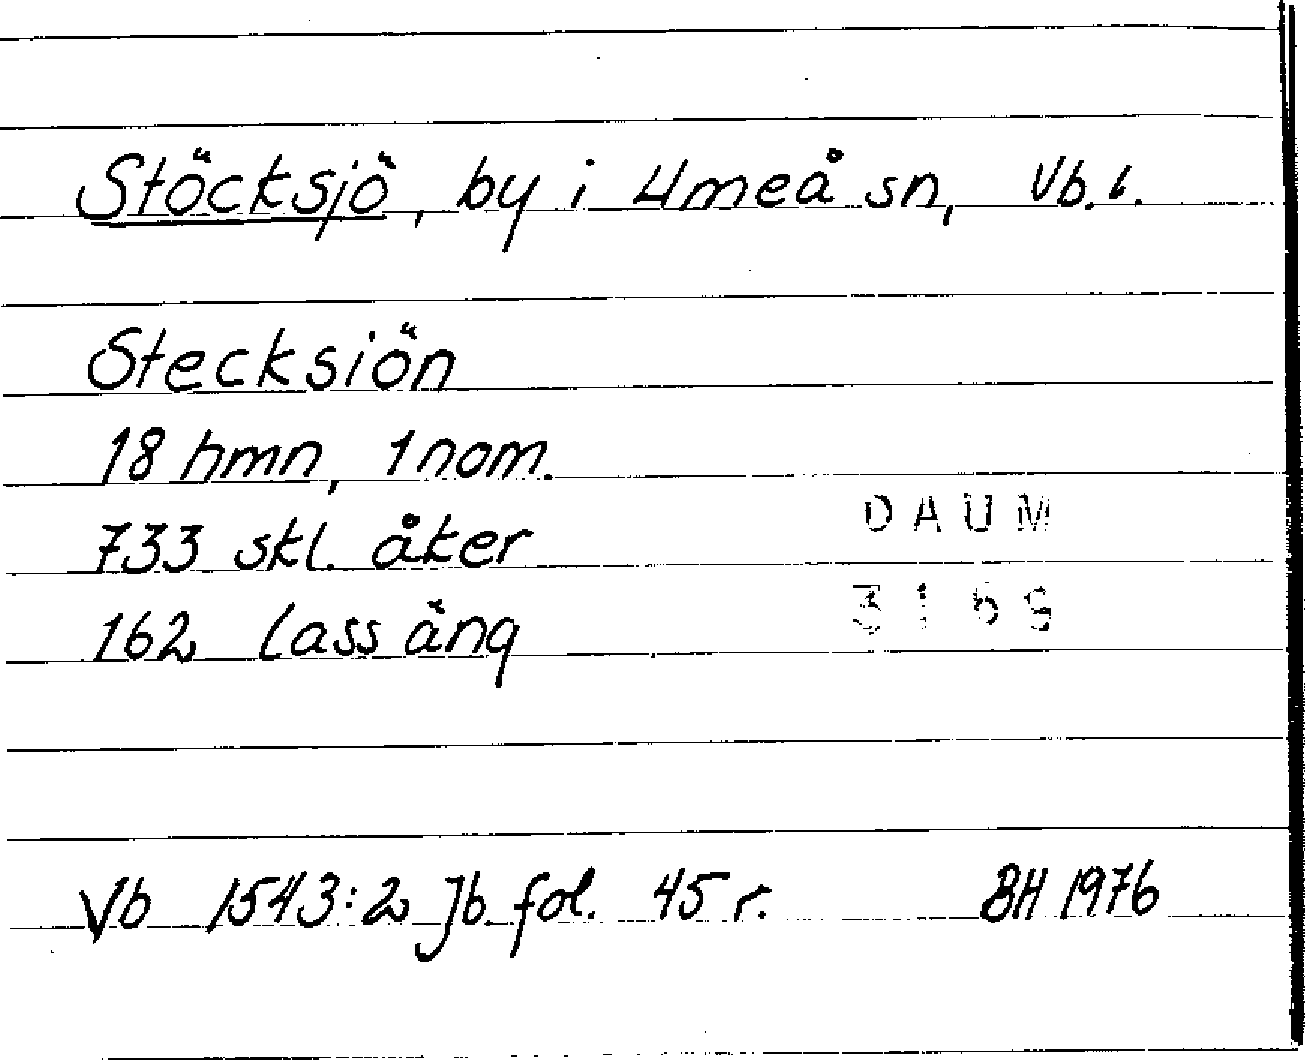 Stöcksjö, by i Umeå sn, Vb. l.
Stecksiön
18 hmn, 1 nom.
733 skl. åker
DAUM
162 lass äng
3169
Vb 1543:2 Jb fol. 45 r. BH 1976